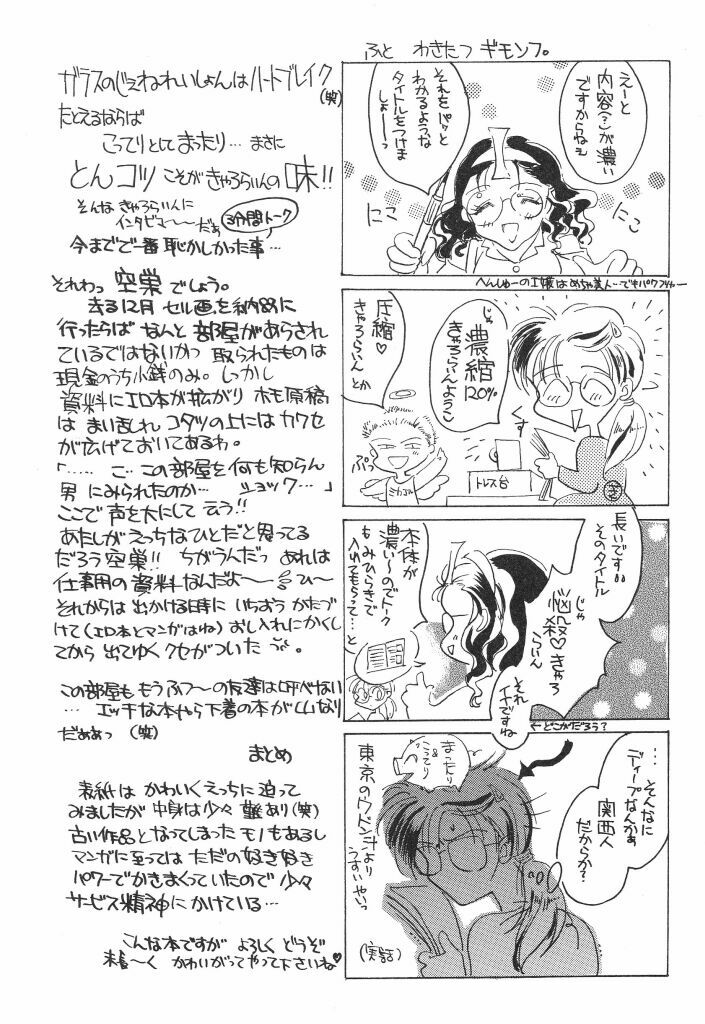 ふと わきたつ ギモンフ。
えーと
内容(?)が濃い
ですからねぇ
それをパッと
わかるような
タイトルをつけま
しょーっ
にこ
にこ
へんしゅーのI嬢はめちゃ美人ーでもパワフルー
じゃ
濃縮
きゃろらいんようこ
120%
圧縮♡
きゃろらいん
とか
くす
ぷっ
トレス台
長いです。
そのタイトル
じゃ
悩殺♡きゃろ
らいん
それ
イイですね
本体が
濃い〜のでトーク
もみひらきで
入れてもらって…と
←どこがだろう?
……そんなに
ディープなんかぁ
関西人
だからか?
まったり
&
こってり
東京のウドン汁より
うすいやいっ
(実話)
ガラスのじぇねれいしょんはハートブレイク
(笑)
たとえるならば
こってりとしてまったり… まさに
とんコツ こそがきゃろらいんの 味!!
そんな きゃろらいんに
インタビュ〜〜だぁ
3分間トーク
今までで一番恥かしかった事…
それわっ 空巣 でしょう。
去る12月 セル画を納めに
行ったらば なんと 部屋があらされ
ているではないかっ 取られたものは
現金のうち小銭のみ。しっかし
資料にエロ本が拡がり ホモ原稿
は まい乱れ コタツの上には カワセ
が広げておいてあるわ。
「…… こ、この部屋を何も知らん
男 にみられたのか… ショック…」
ここで 声を大にして 云う!!
あたしがえっちなひとだと思ってる
だろう空巣!! ちがうんだっ あれは
仕事用の資料なんだよ〜 ひ〜
それからは 出かける時に いちおう かたづ
けて(エロ本とマンガはね) おし入れにかくし
てから 出てゆく クセがついた
この部屋も もうふつ〜の友達は呼べない
… エッチな本やら下着の本がいっぱい
だぁぁっ (笑)
まとめ
表紙は かわいくえっちに迫って
みましたが 中身は少々 難あり(笑)
古い作品となってしまった モノもあるし
マンガに至っては ただの好き好き
パワーでかきまくっていたので 少々
サービス精神にかけている…
こんな本ですが よろしく どうぞ
末長〜く かわいがってやって下さいね♡